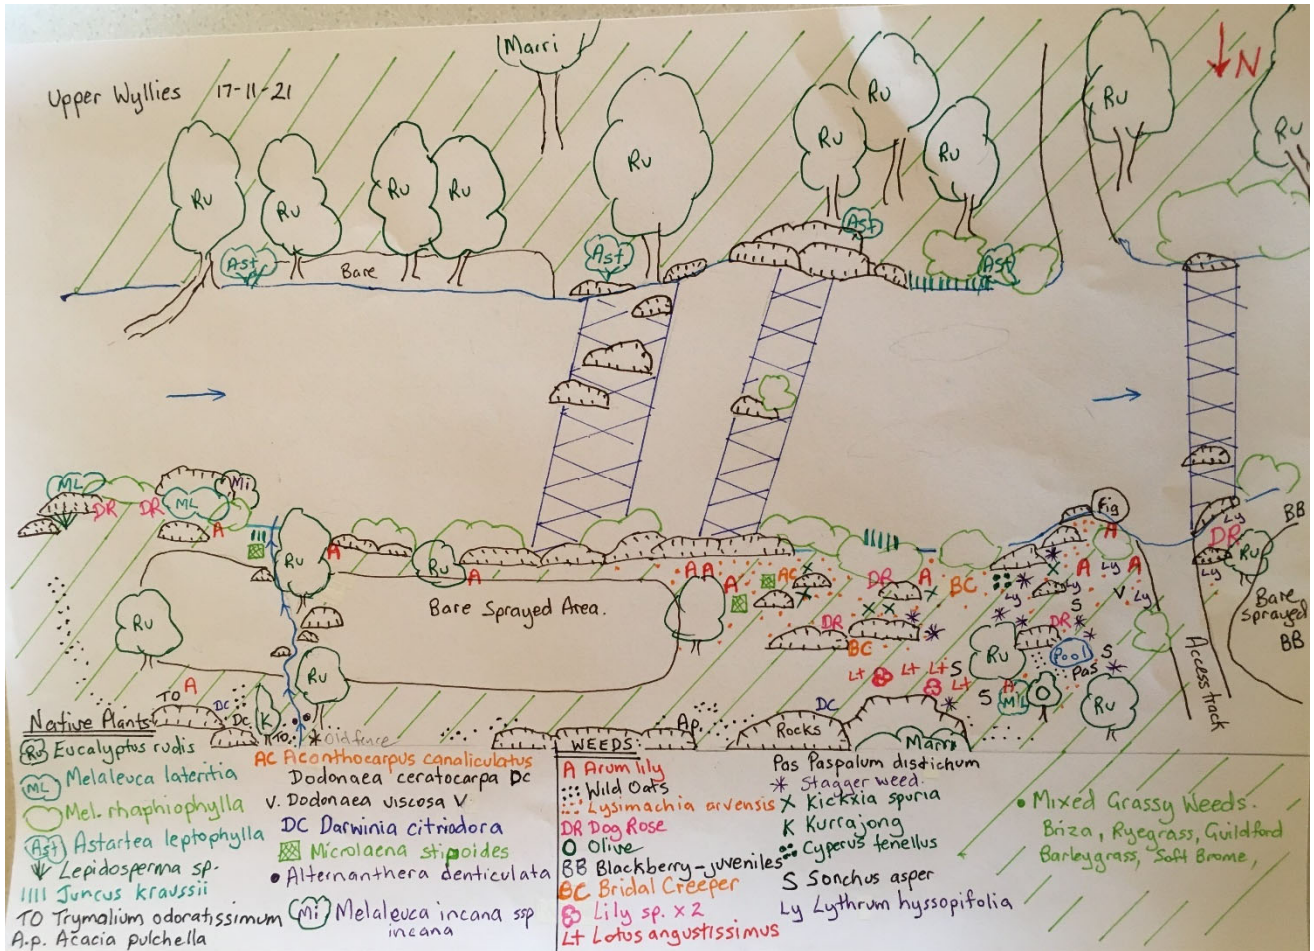 Upper Wyllies 17-11-21
Marri
N
Ru
Ru
Ru
Ru
Ru
Ru
Ru
Ru
Ru
Ru
Ast
Bare
Ast
Ast
Ast
ML
DR
DR
ML
Mi
A
Fig
A
BB
Ly
DR
Ru
Ly
Ru
A
Ru
A
A A
A
AC
DR
A
BC
Ly
Ly
A
Ly
A
V
Ly
S
DR
Bare Sprayed Area.
Bare
Sprayed
BB
Ru
DR
BC
Lt
Lt
Lt
Lt
S
Ru
Pool
S
Pas
S
A
ML
O
Ru
Access track
Ru
TO
A
DC
Dc
K
TO
Old fence
Ap
DC
Rocks
Marri
Native Plants
Ru Eucalyptos rudis
ML Melaleuca lateritia
Mel. rhaphiophylla
Ast Astartea leptophylla
Lepidosperma sp.
Juncus kraussii
TO Trymalium odoratissimum
A.p. Acacia pulchella
AC Aconthocarpus canaliculatus
Dodonaea ceratocarpa Dc
V. Dodonaea viscosa V
DC Darwinia citriodora
Microlaena stipoides
Alternanthera denticulata
Mi Melaleuca incana ssp
incana
WEEDS
A Arum lily
Wild Oats
Lysimachia arvensis
DR Dog Rose
O Olive
BB Blackberry-juveniles
BC Bridal Creeper
Lily sp. x 2
Lt Lotus angustissimus
Pas Paspalum distichum
Stagger weed.
X Kickxia spuria
K Kurrajong
Cyperus tenellus
S Sonchus asper
Ly Lythrum hyssopifolia
Mixed Grassy Weeds.
Briza, Ryegrass, Guildford
Barleygrass, Soft Brome,